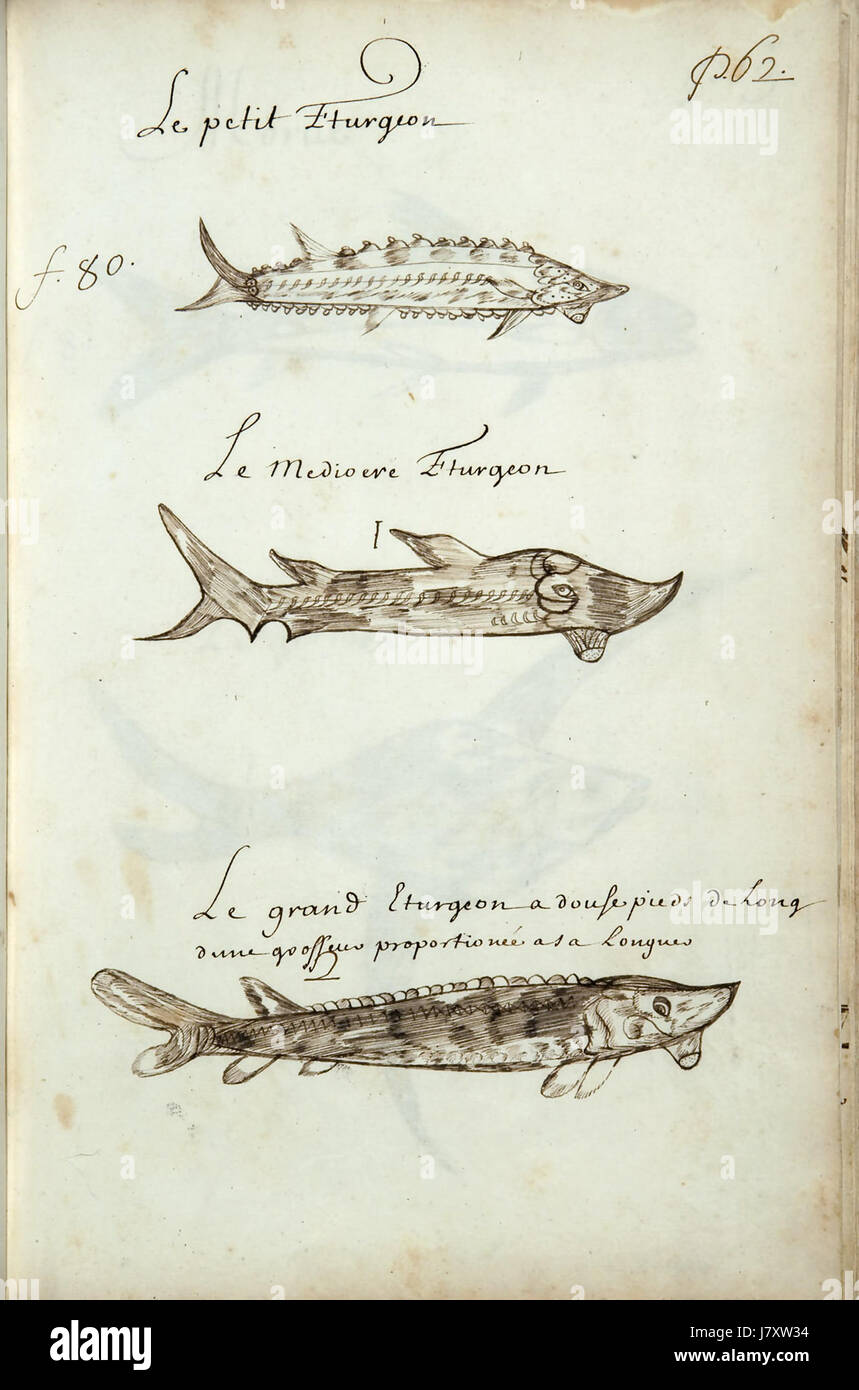 p. 62.
Le petit Eturgeon
f. 80.
Le Mediocre Eturgeon
I
Le grand Eturgeon a douse pieds de Long
dune grosseur proportionée a sa Longueur
alamy
Image ID: J7XW34
www.alamy.com